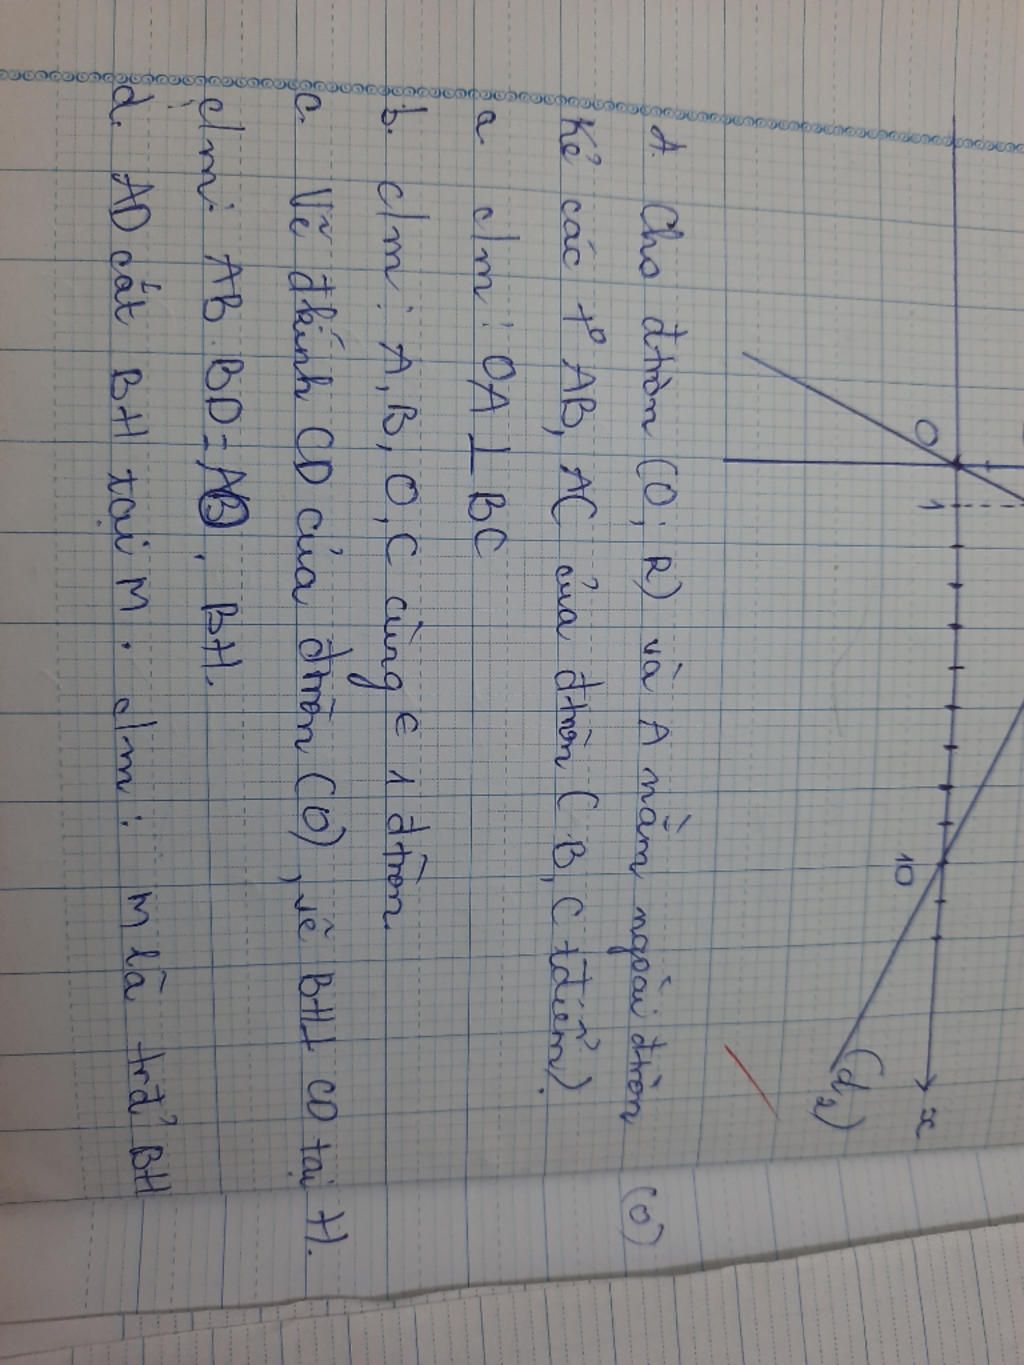 O
1
10
x
(d₂)
A. Cho đtròn (O; R) và A nằm ngoài đtròn (O)
Kẻ các t° AB, AC của đtròn (B, C tđiểm).
a. c/m: OA ⊥ BC
b. c/m: A, B, O, C cùng ∈ 1 đtròn.
c. Vẽ đkính CD của đtròn (O), vẽ BH ⊥ CD tại H.
c/m: AB. BD = . BH.
d. AD cắt BH tại M. c/m: M là trđ' BH